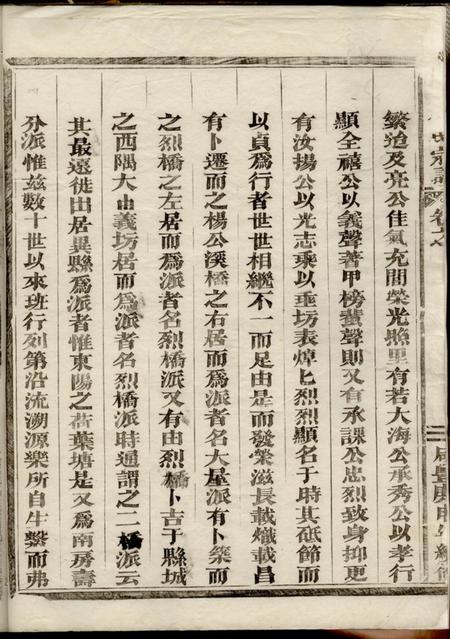 宗譜 卷之
繁迨及亮公佳氣充閭榮光照里有若大海公承秀公以孝行
顯全禧公以義聲著甲榜蜚聲則又有承課公忠烈致身抑更
有汝揚公以光志乘以垂坊表焯匕烈烈顯名于時其砥節而
以貞爲行者世世相繼不一而足由是而發榮滋長載熾載昌
有卜遷而之楊公溪橋之右居而爲派者名大屋派有卜築而
之烈橋之左居而爲派者名烈橋派又有由烈橋卜吉于縣城
之西隅大山義坊居而爲派者名烈橋派時通謂之二橋派云
其最遠徙出居異縣爲派者惟東陽之荷葉塘是又爲南房壽
分派惟玆數十世以來班行列第沿流溯源樂所自生繫而弗
咸豐庚申年